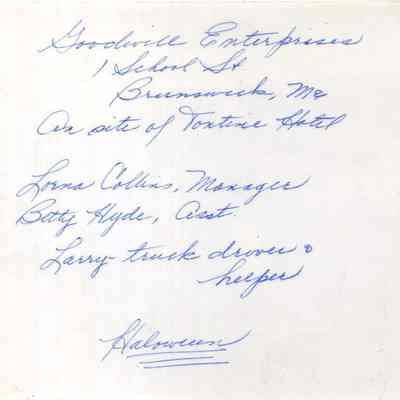 Goodwill Enterprises
1 School St
Brunswick, Me
On site of Tontine Hotel
Lorna Collins, Manager
Betty Hyde, Asst.
Larry truck driver &
helper
Haloween